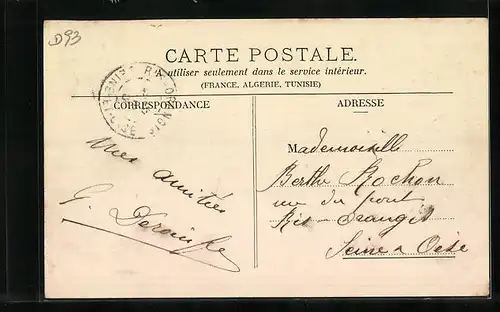 D93
CARTE POSTALE.
A utiliser seulement dans le service intérieur.
(FRANCE, ALGERIE, TUNISIE)
CORRESPONDANCE
mes amitiés
G.
ADRESSE
Mademoiselle
Berthe Rochon
rue du pont
Ris-Orangis
Seine & Oise